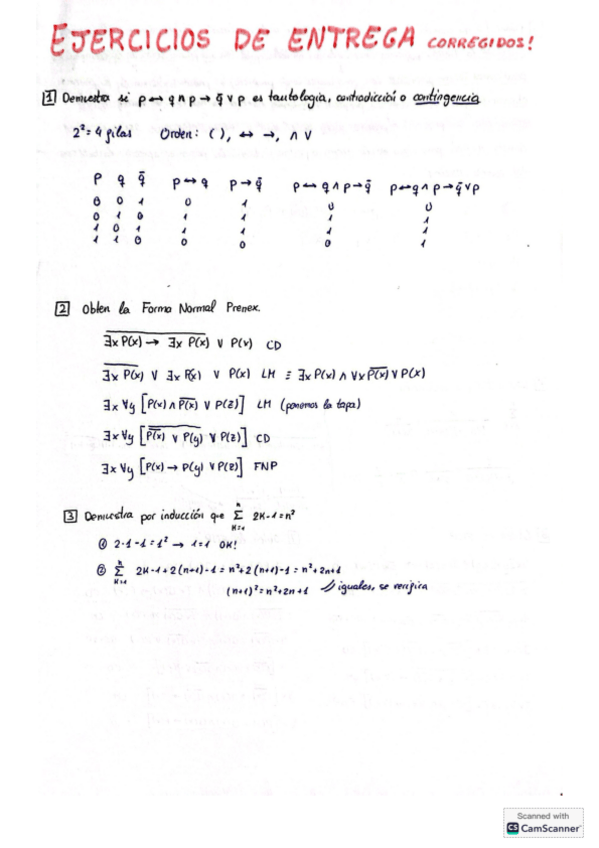 EJERCICIOS DE ENTREGA CORREGIDOS!
1 Demuestra si p ↔ q ∧ p → q̄ ∨ p es tautología, contradicción o contingencia
2² = 4 filas Orden: ( ), ↔ →, ∧ ∨
p q q̄ p ↔ q p → q̄ p ↔ q ∧ p → q̄ p ↔ q ∧ p → q̄ ∨ p
0 0 1 0 1 0 0
0 1 0 1 1 1 1
1 0 1 1 1 1 1
1 1 0 0 0 0 1
2 Obten la Forma Normal Prenex.
∃x P(x) → ∃x P(x) ∨ P(x) CD
∃x P(x) ∨ ∃x P(x) ∨ P(x) LM ≡ ∃x P(x) ∧ ∀x P(x) ∨ P(x)
∃x ∀y [P(x) ∧ P(x) ∨ P(z)] LM (ponemos la tapa)
∃x ∀y [P(x) ∨ P(y) ∨ P(z)] CD
∃x ∀y [P(x) → P(y) ∨ P(z)] FNP
3 Demuestra por inducción que Σ 2K-1 = n²
① 2·1-1 = 1² → 1=1 OK!
② Σ 2K-1 + 2(n+1)-1 = n² + 2(n+1)-1 = n² + 2n+1
(n+1)² = n² + 2n + 1 // iguales, se verifica
Scanned with
CS CamScanner